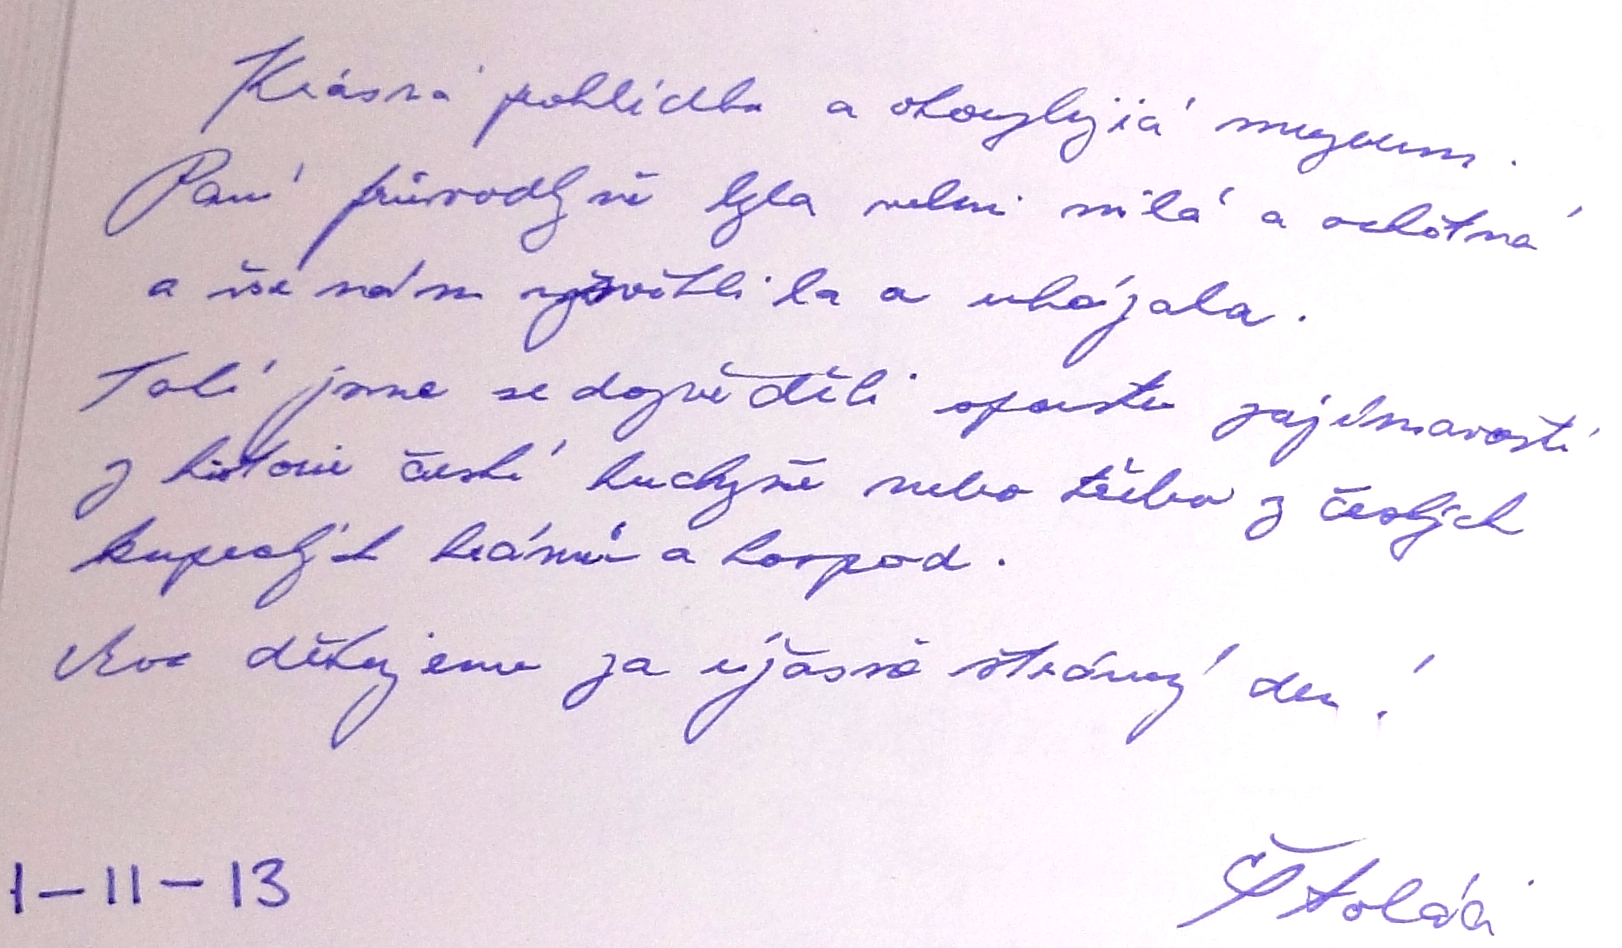 Krásná pohlídka a okouzlující muzeum.
Paní průvodkyně byla velmi milá a ochotná
a vše nám vysvětlila a ukázala.
Také jsme se dozvěděli spoustu zajímavostí
z historie české kuchyně nebo třeba z českých
kupeckých krámů a hospod.
Moc děkujeme za úžasně strávený den!
1-11-13